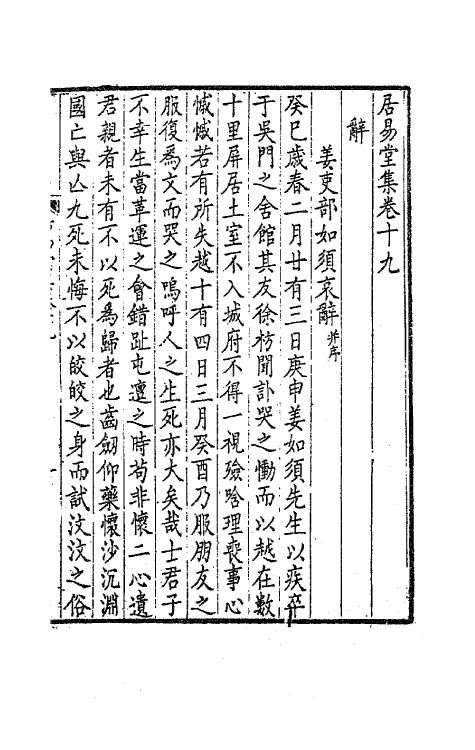 居易堂集卷十九
辭
姜吏部如須哀辭并序
癸巳歲春二月廿有三日庚申姜如須先生以疾卒
于吳門之舍館其友徐枋聞訃哭之慟而以越在數
十里屏居土室不入城府不得一視殮含理喪事心
慽慽若有所失越十有四日三月癸酉乃服朋友之
服復為文而哭之嗚呼人之生死亦大矣哉士君子
不幸生當革運之會錯趾屯邅之時苟非懷二心遺
君親者未有不以死為歸者也齒劔仰藥懷沙沉淵
國亡與亡九死未悔不以皎皎之身而試汶汶之俗